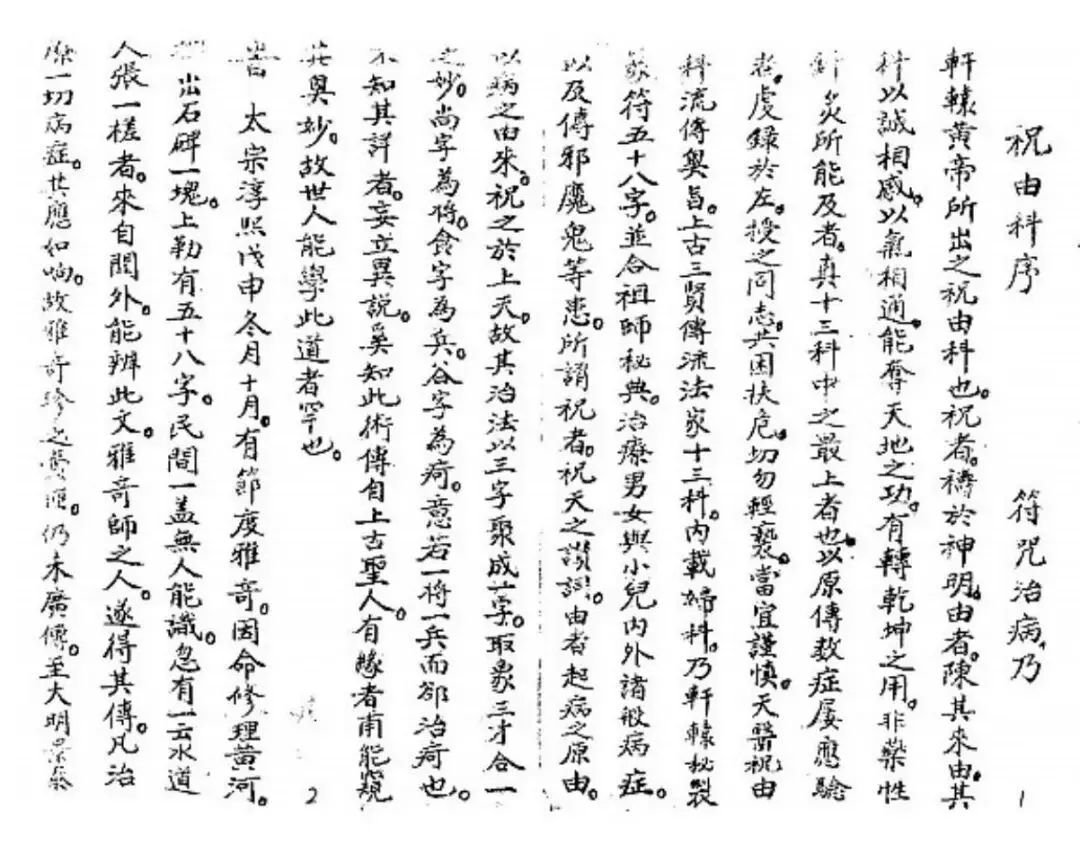 祝由科序　符咒治病,乃
軒轅黃帝所出之祝由科也。祝者。禱於神明。由者。陳其來由。其
科以誠相感。以氣相通。能奪天地之功。有轉乾坤之用。非藥性
針灸所能及者。真十三科中之最上者也。以原傳教症屢應驗
者。虔錄於左。授之同志。共困扶危。切勿輕褻。當宜謹慎。天醫祝由
科流傳奥旨。上古三賢傳流法家十三科。內載婦科。乃軒轅秘製
符五十八字。並合祖師秘典。治療男女與小兒內外諸般病症。
以及傳邪魔鬼等患。所謂祝者。祝天之讚詞。由者起病之原由。
以病之由來。祝之於上天。故其治法以三字聚成一字。取象三才合一
之妙。尚字為將。食字為兵。谷字為疴。意若一將一兵而部治疴也。
不知其詳者。妄立異說。奚知此術傳自上古聖人。有緣者甫能窺
其奥妙。故世人能學此道者罕也。
太宗淳熙戊申冬月十月。有節度雅奇。因命修理黃河。
出石碑一塊。上勒有五十八字。民間一盖無人能識。忽有一云水道
人張一槎者。來自閣外。能辨此文。雅奇師之人。遂得其傳。凡治
療一切病症。其應如响。故雅奇珍之。仍未廣傳。至大明景泰
1
2